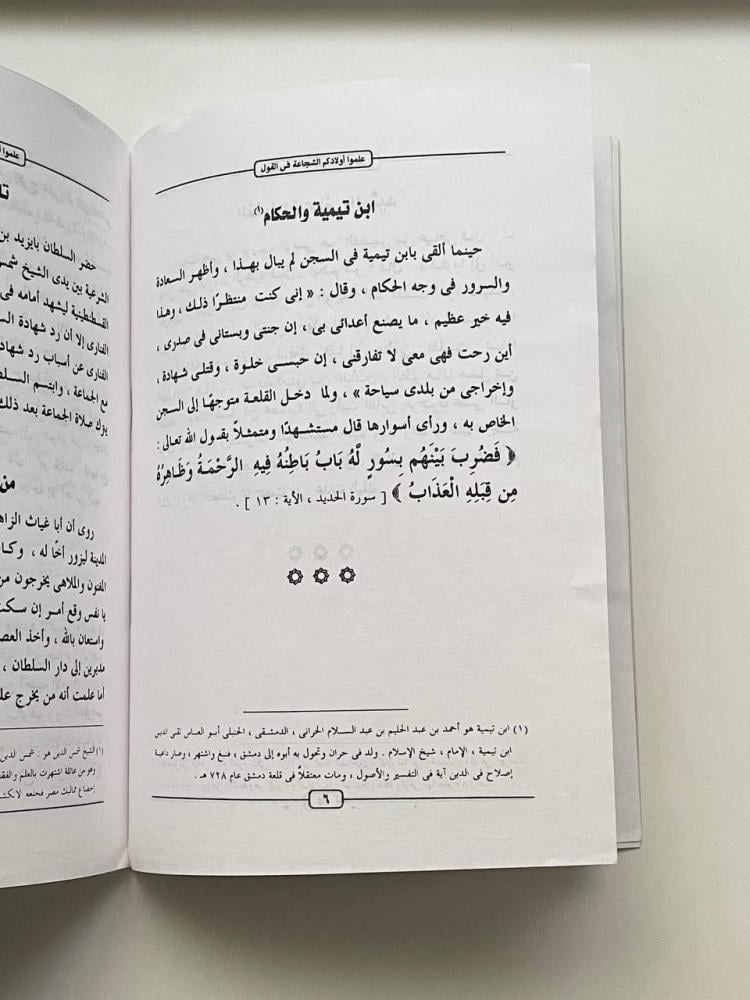 علموا أولادكم الشجاعة فى القول
ابن تيمية والحكام (١)
حينما ألقى بابن تيمية فى السجن لم يبال بهذا ، وأظهر السعادة
والسرور فى وجه الحكام ، وقال : « إنى كنت منتظرًا ذلك ، وهذا
فيه خير عظيم ، ما يصنع أعدائى بى ، إن جنتى وبستانى فى صدرى ،
أين رحت فهى معى لا تفارقنى ، إن حبسى خلوة ، وقتلى شهادة ،
وإخراجى من بلدى سياحة » ، ولما دخل القلعة متوجهًا إلى السجن
الخاص به ، ورأى أسوارها قال مستشهدًا ومتمثلاً بقول الله تعالى :
﴿ فَضُرِبَ بَيْنَهُم بِسُورٍ لَّهُ بَابٌ بَاطِنُهُ فِيهِ الرَّحْمَةُ وَظَاهِرُهُ
مِن قِبَلِهِ الْعَذَابُ ﴾ [ سورة الحديد ، الأية : ١٣ ] .
(١) ابن تيمية هو أحمد بن عبد الحليم بن عبد السلام الحرانى ، الدمشقى ، الحنبلى أبو العباس تقى الدين
ابن تيمية ، الإمام ، شيخ الإسلام . ولد فى حران وتحول به أبوه إلى دمشق ، فنبغ واشتهر ، وصار داعية
إصلاح فى الدين آية فى التفسير والأصول ، ومات معتقلاً فى قلعة دمشق عام ٧٢٨ هـ .
٦
علموا أ
حضر السلطان بايزيد بن
الشرعية بين يدى الشيخ شمس
القسطنطينية ليشهد أمامه فى
الفنارى إلا أن رد شهادة الس
الفنارى عن أسباب رد شهاد
مع الجماعة ، وابتسم السلط
يترك صلاة الجماعة بعد ذلك
من
روى أن أبا غياث الزاه
المدينة ليزور أخًا له ، وكا
المغنون والملاهى يخرجون من
يا نفس وقع أمر إن سكت
واستعان بالله ، وأخذ العصا
مدبرين إلى دار السلطان ،
أما علمت أنه من يخرج عل
(١) الشيخ شمس الدين هو : شمس الدين
وهو من عائلة اشتهرت بالعلم والفقه